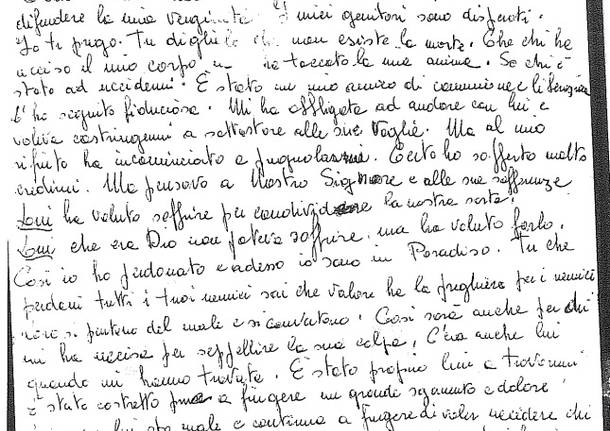 difendere la mia verginità. I miei genitori sono disperati.
Io ti prego. Tu diglielo che non esiste la morte. Che chi ha
ucciso il mio corpo non ha toccato la mia anima. Se chi è
stato ad uccidermi. È stato un mio amico di comunione e liberazione
L'ho seguito fiduciosa. Mi ha obbligata ad andare con lui e
voleva costringermi a sottostare alle sue voglie. Ma al mio
rifiuto ha incominciato a pugnalarmi. Certo ho sofferto molto
credimi. Ma pensavo a Nostro Signore e alle sue sofferenze
Lui ha voluto soffrire per condividere la nostra sorte.
Lui che era Dio non poteva soffrire, ma ha voluto farlo.
Così io ho perdonato e adesso io sono in Paradiso. Tu che
perdoni tutti i tuoi nemici sai che valore ha la preghiera per i nemici
si pentono del male e si convertono. Così sarà anche per chi
mi ha uccisa per seppellire la sua colpa. C'era anche lui
quando mi hanno trovata. È stato proprio lui a trovarmi
è stato costretto a fingere un grande sgomento e dolore
lui sta male e continua a fingere di voler uccidere chi